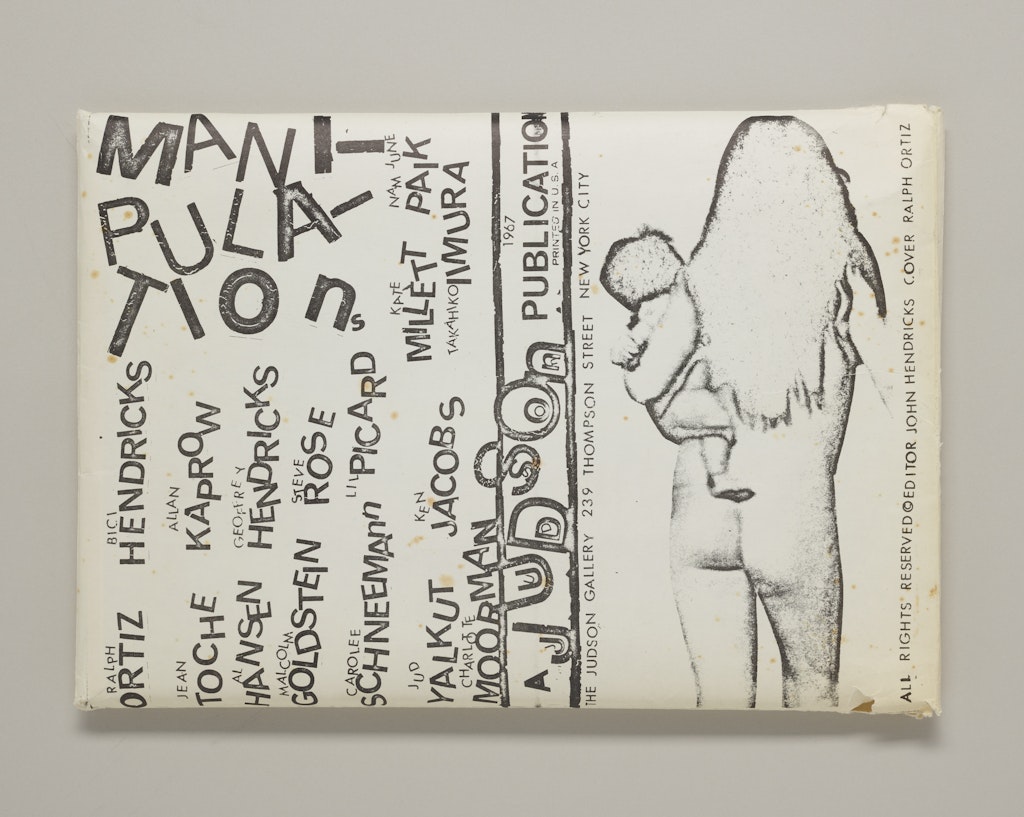 MANI
PULA-
TIOns
RALPH ORTIZ
BICI HENDRICKS
JEAN TOCHE
ALLAN KAPROW
AL HANSEN
GEOFFREY HENDRICKS
MALCOLM GOLDSTEIN
STEVE ROSE
CAROLEE SCHNEEMAnn
LIL PICARD
KATE MILLETT
NAM JUNE PAIK
JUD YALKUT
KEN JACOBS
TAKAHIKO IIMURA
CHARLOTTE MOORMAN
A JUDSOn PUBLICATION
1967
PRINTED IN U.S.A.
THE JUDSON GALLERY 239 THOMPSON STREET NEW YORK CITY
ALL RIGHTS RESERVED © EDITOR JOHN HENDRICKS COVER RALPH ORTIZ